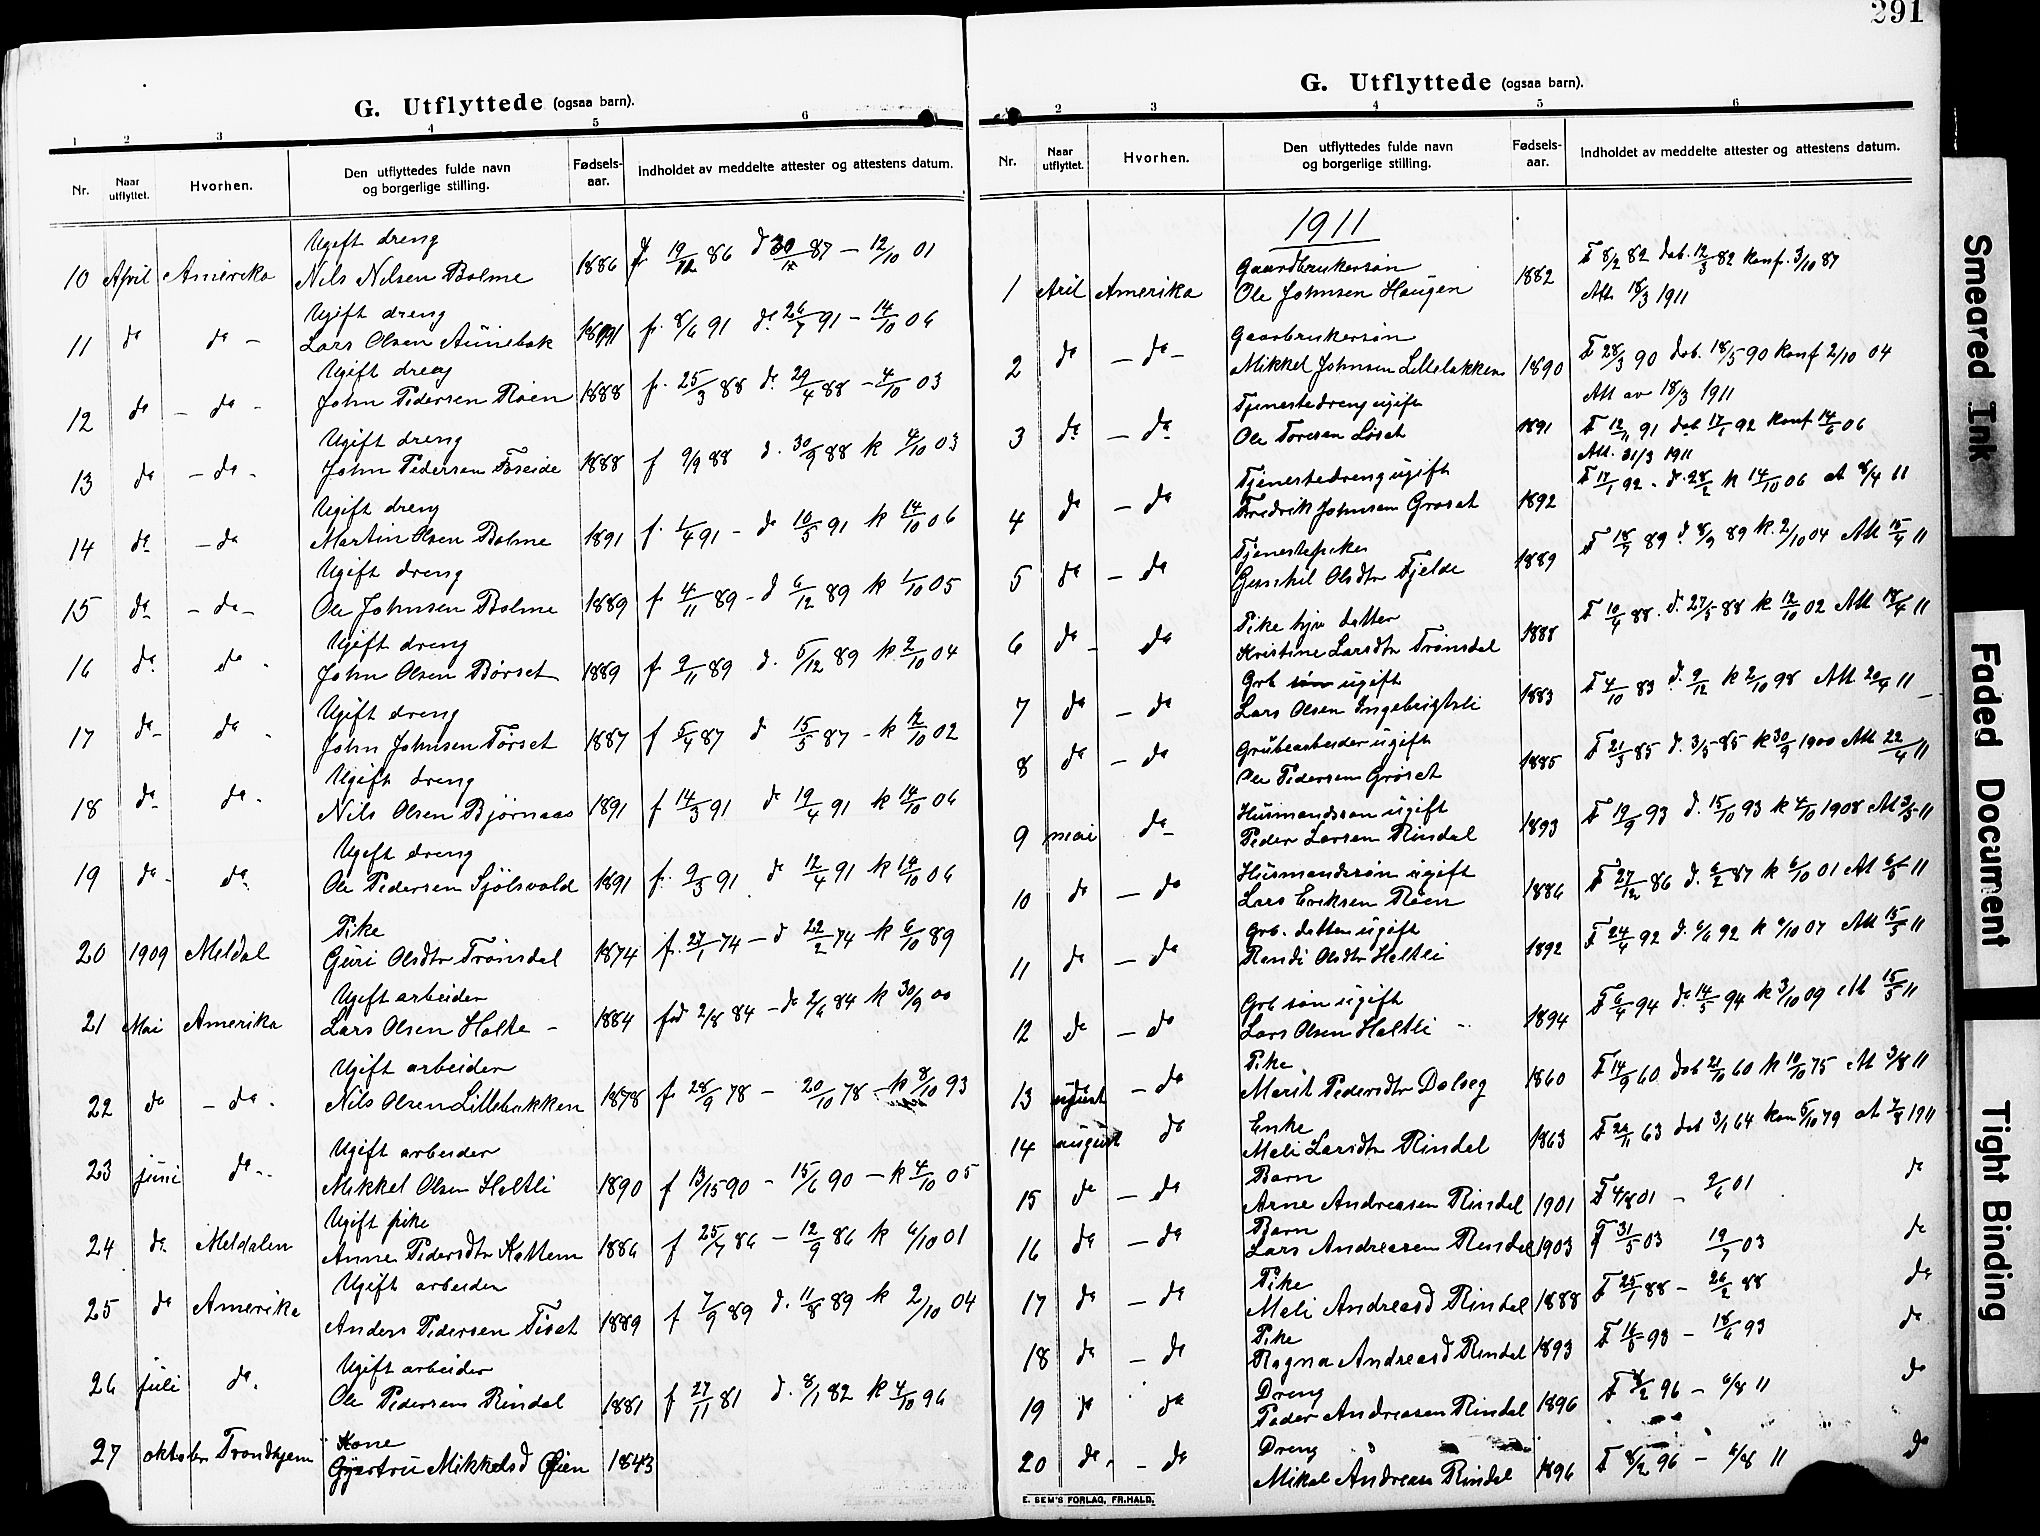 291
G. Utflyttede (ogsaa barn).
1 2 3 4 5 6
Nr. Naar utflyttet. Hvorhen. Den utflyttedes fulde navn og borgerlige stilling. Fødsels-aar. Indholdet av meddelte attester og attestens datum.
Ugift dreng
10 April Amerika Nils Nilsen Bolme 1886 f 19/12 86 d 30/12 87 – 12/10 01
Ugift dreng
11 do do – Lars Olsen Aunebak 1891 f. 8/6 91 do 26/7 91 – 14/10 06
Ugift dreng
12 do – do – John Pedersen Røen 1888 f. 25/3 88 do 29/4 88 – 4/10 03
Ugift dreng
13 do – do – John Pedersen Foseide 1888 f 9/9 88 d. 30/9 88 k 4/10 03
Ugift dreng
14 do – do Martin Olsen Bolme 1891 f. 1/4 91 – do 10/5 91 k 14/10 06
Ugift dreng
15 do – do – Ole Johnsen Bolme 1889 f 4/11 89 – d 6/12 89 k 1/10 05
Ugift dreng
16 do do – John Olsen Børset 1889 f 9/11 89 d. 5/12 89 k. 2/10 04
Ugift dreng
17 do do – John Johnsen Tørset 1887 f 5/4 87 d 15/5 87 – k 12/10 02
Ugift dreng
18 do do – Nils Olsen Bjørnaas 1891 f 14/3 91 do 19/4 91 k 14/10 06
Ugift dreng
19 do – do Ole Pedersen Sjölsvold 1891 f. 9/3 91 do 12/4 91 k 14/10 06
Pike
20 1909 Meldal Guri Olsdtr Trönsdal 1874 f. 27/1 74 – d 22/2 74 – k 6/10 89
Ugift arbeider
21 Mai Amerika Lars Olsen Holte – 1884 fød 2/8 84 – do 2/6 84 k 30/9 00
Ugift arbeider
22 do – do – Nils Olsen Lillebakken 1878 f 28/9 78 – 20/10 78 – k 8/10 93
Ugift arbeider
23 juni do – Mikkel Olsen Holtli 1890 f 13/15 90 – 15/6 90 – k 4/10 05
Ugift pike
24 do Meldalen Anne Pedersdtr Kattem 1886 f 25/7 86 – 12/9 86 k 6/10 01
Ugift arbeider
25 do Amerika Anders Pedersen Tiset 1889 f 7/9 89 d. 11/8 89 k 2/10 04
Ugift arbeider
26 juli do Ole Pedersen Rindal 1881 f 27/11 81 d. 8/1 82 k 4/10 96
Kone
27 oktober Trondhjem Gjertru Mikkelsd Øien 1843
G. Utflyttede (ogsaa barn).
2 3 4 5 6
Nr. Naar utflyttet. Hvorhen. Den utflyttedes fulde navn og borgerlige stilling. Fødsels-aar. Indholdet av meddelte attester og attestens datum.
1911
Gaardbrukersøn F 8/2 82 dob. 12/3 82 konf. 3/10 87
1 Aril Amerika Ole Johnsen Haugen 1882 Att 18/3 1911
Gaarbrukersøn
2 do – do – Mikkel Johnsen Lillebakken 1890 F 28/3 90 dob. 18/5 90 konf 2/10 04
Att av 18/3 1911
Tjenestedreng ugift
3 do – do Ole Toresen Løset 1891 F 12/11 91 dob 17/1 92 konf 14/6 06
Att. 31/3 1911
Tjenestedreng ugift
4 do – do Fredrik Johnsen Grøset 1892 F 17/1 92 – d. 28/2 k 14/10 06 at 8/4 11
Tjenestepike
5 do – do Gunhil Olsdtr Fjelde 1889 F 18/7 89 d. 8/9 89 k. 2/10 04 Att 15/4 11
Pike hjv datter
6 do – do Kristine Larsdtr Trønsdal 1888 F 10/4 88 d. 27/5 88 k 12/10 02 Att 18/4 11
Grb søn ugift
7 do – do Lars Olsen Ingebrigtsli 1883 F 4/10 83 d. 9/12 k 2/10 98 Att 20/4 11
Grubearbeider ugift
8 do – do Ole Pedersen Grøset 1885 F 21/3 85 d. 3/5 85 k 30/9 1900 Att 22/4 11
Husmandssøn ugift
9 mai do – Peder Larsen Rindal 1893 F 19/9 93 d. 15/10 93 k 4/10 1908 At 3/5 11
Husmandssøn ugift
10 do – do Lars Eriksen Røen 1886 F 27/12 86 d. 6/2 87 k 6/10 01 At 6/5 11
Grb. datter ugift
11 do – do Randi Olsdtr Holtli 1892 F 24/4 92 d. 6/6 92 k 6/10 07 Att 15/5 11
Grb søn ugift
12 do – do Lars Olsen Holtli 1894 F 6/4 94 do 14/5 94 k 3/10 09 Att 15/5 11
Pike
13 august – do Marit Pedersdtr Dalseg 1860 F 14/9 60 dob 21/10 60 k 10/10 75 At 3/8 11
Enke
14 august do Meli Larsdtr Rindal 1863 F 26/11 63 dob 3/1 64 kon 5/10 79 at 7/8 1911
Barn
15 do – do Arne Andreasen Rindal 1901 F 4/8 01 – 2/6 01 do
Barn
16 do – do Lars Andreasen Rindal 1903 F 31/5 03 19/7 03 do
Pike
17 do – do Meli Andreasd Rindal 1888 F 25/1 88 – 26/2 88 do
Pike
18 do – do Ragna Andreasd Rindal 1893 F 16/5 93 – 18/6 93 do
Dreng
19 do do Peder Andreasen Rindal 1896 F 8/2 96 – 6/8 11 do
Dreng
20 do – do Mikal Andreasen Rindal 1896 F 8/2 96 – 6/8 11 do
E. SEM'S FORLAG, FR.HALD.
Smeared Ink
Faded Document
Tight Binding